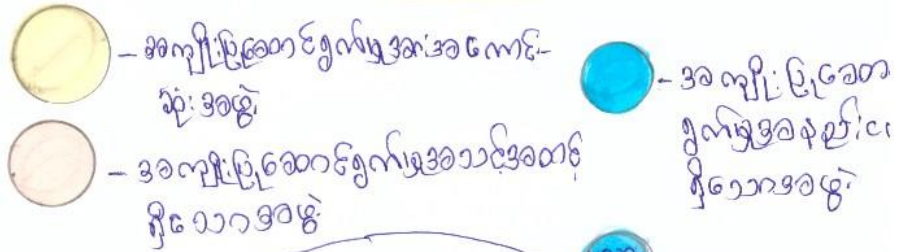 - အကျိုးပြုဆောင်ရွက်မှုအားအကောင်း-
ဆုံးအဖွဲ့
- အကျိုးပြုဆောင်ရွက်မှုအသင့်အတင့်
ရှိသောအဖွဲ့
- အကျိုးပြုဆော
ရွက်မှုအနည်းင
ရှိသောအဖွဲ့